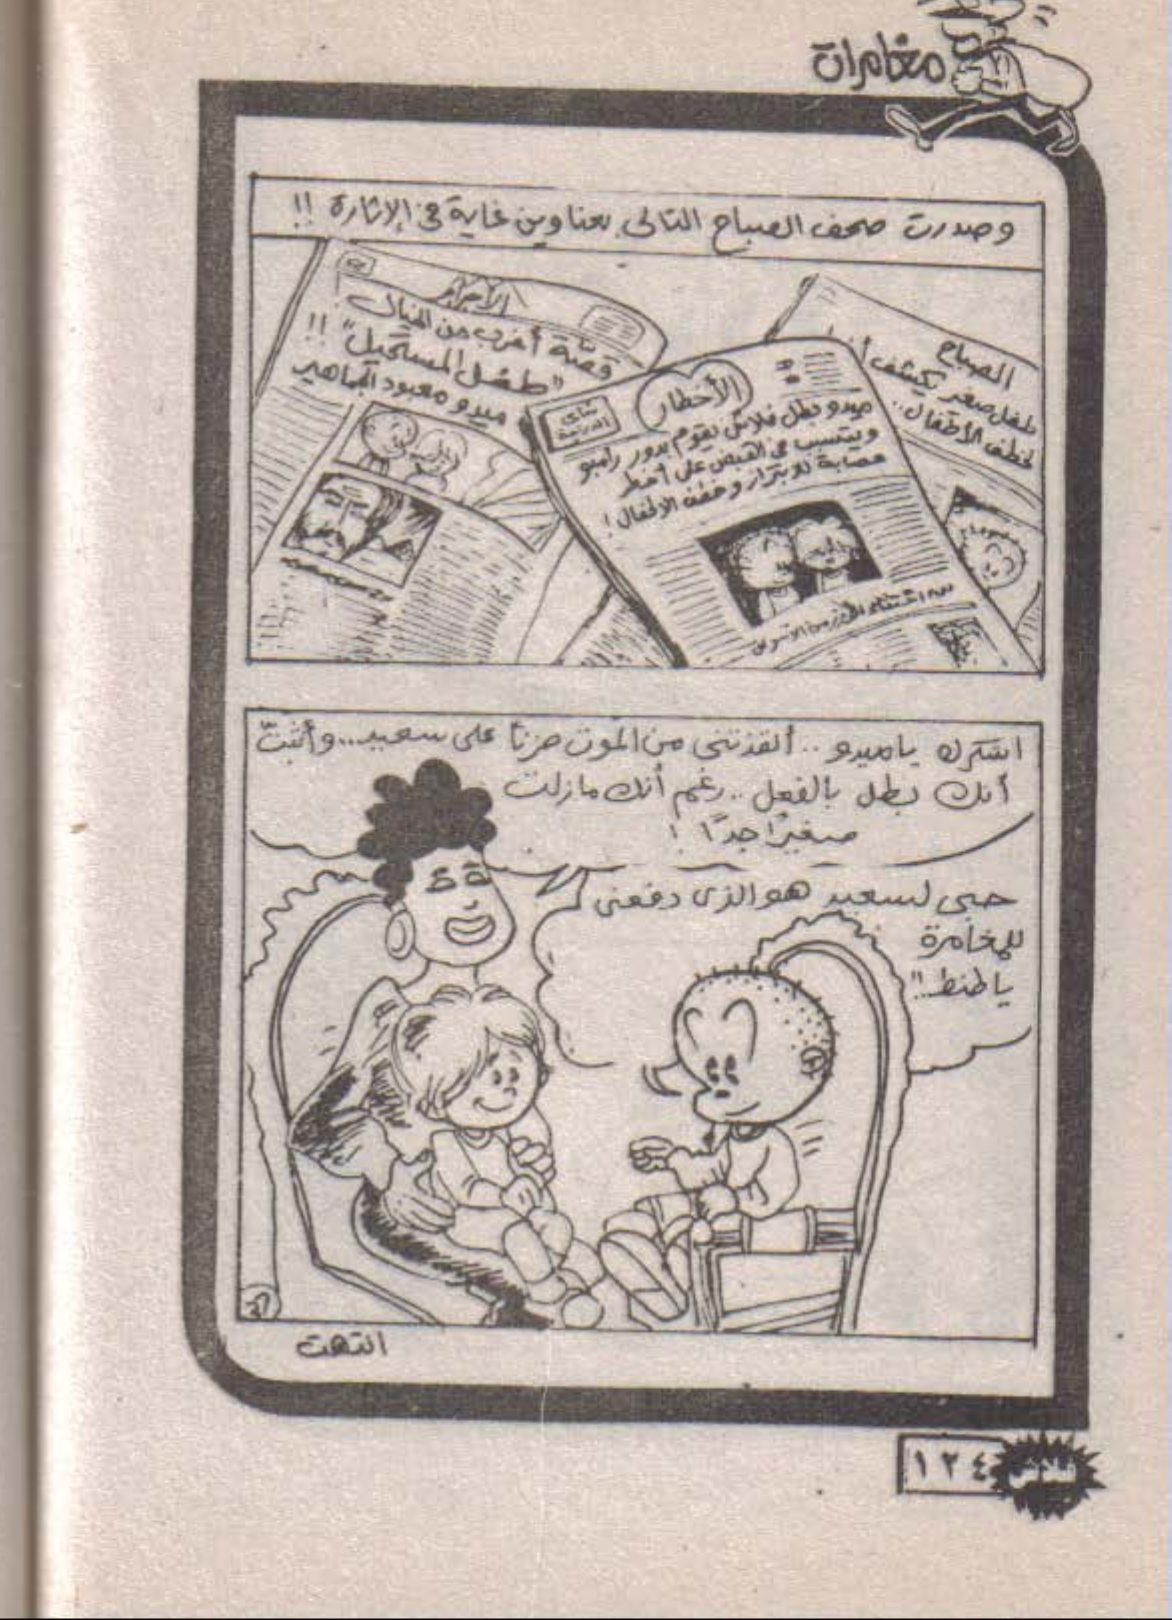 مغامرات
وصدرت صحف الصباح التالى بعناوين غاية فى الإثارة !!
قصة أغرب من الخيال
"طفل المستحيل" !!
ميدو معبود الجماهير
الأخطار
شاى
ميدو بطل فلاش يقوم بدور رامبو
ويتسبب فى القبض على أخطر
عصابة لابتزاز وخطف الأطفال !
الصباح
طفل صغير يكشف
لخطف الأطفال..
اشكرك ياميدو .. أنقذتنى من الموت حزناً على سعيد... وأثبتّ
أنك بطل بالفعل .. رغم أنك مازلت
صغيرًا جدًا !
حبى لسعيد هو الذى دفعنى
للمغامرة
ياطنط.."
٣٦
انتهت
فلاش ١٢٤